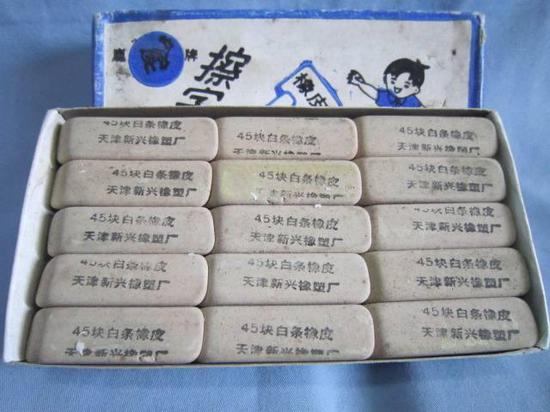 擦字
橡皮
45块白条橡皮
天津新兴橡塑厂
45块白条橡皮
天津新兴橡塑厂
45块白条橡皮
天津新兴橡塑厂
45块白条橡皮
天津新兴橡塑厂
块白条橡皮
天津新兴橡塑厂
45块白条橡皮
天津新兴橡塑厂
45块白条橡皮
天津新兴橡塑厂
45块白条橡皮
天津新兴橡塑厂
45块白条橡皮
天津新兴橡塑厂
45块白条橡皮
天津新兴橡塑厂
45块白条橡皮
天津新兴橡塑厂
45块白条橡皮
天津新兴橡塑厂
45块白条橡皮
天津新兴橡塑厂
45块白条橡皮
天津新兴橡塑厂
45块白条橡皮
天津新兴橡塑厂